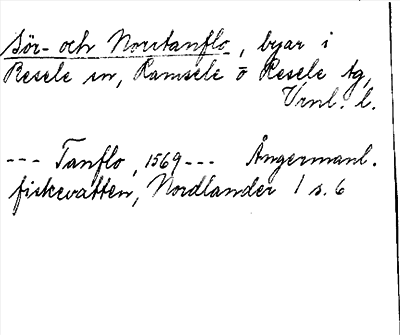 Sör- och Norrtanflo, byar i
Resele sn, Ramsele o Resele tg,
Vrnl. l.
--- Tanflo, 1569 --- Ångermanl.
fiskevatten, Nordlander 1 s. 6